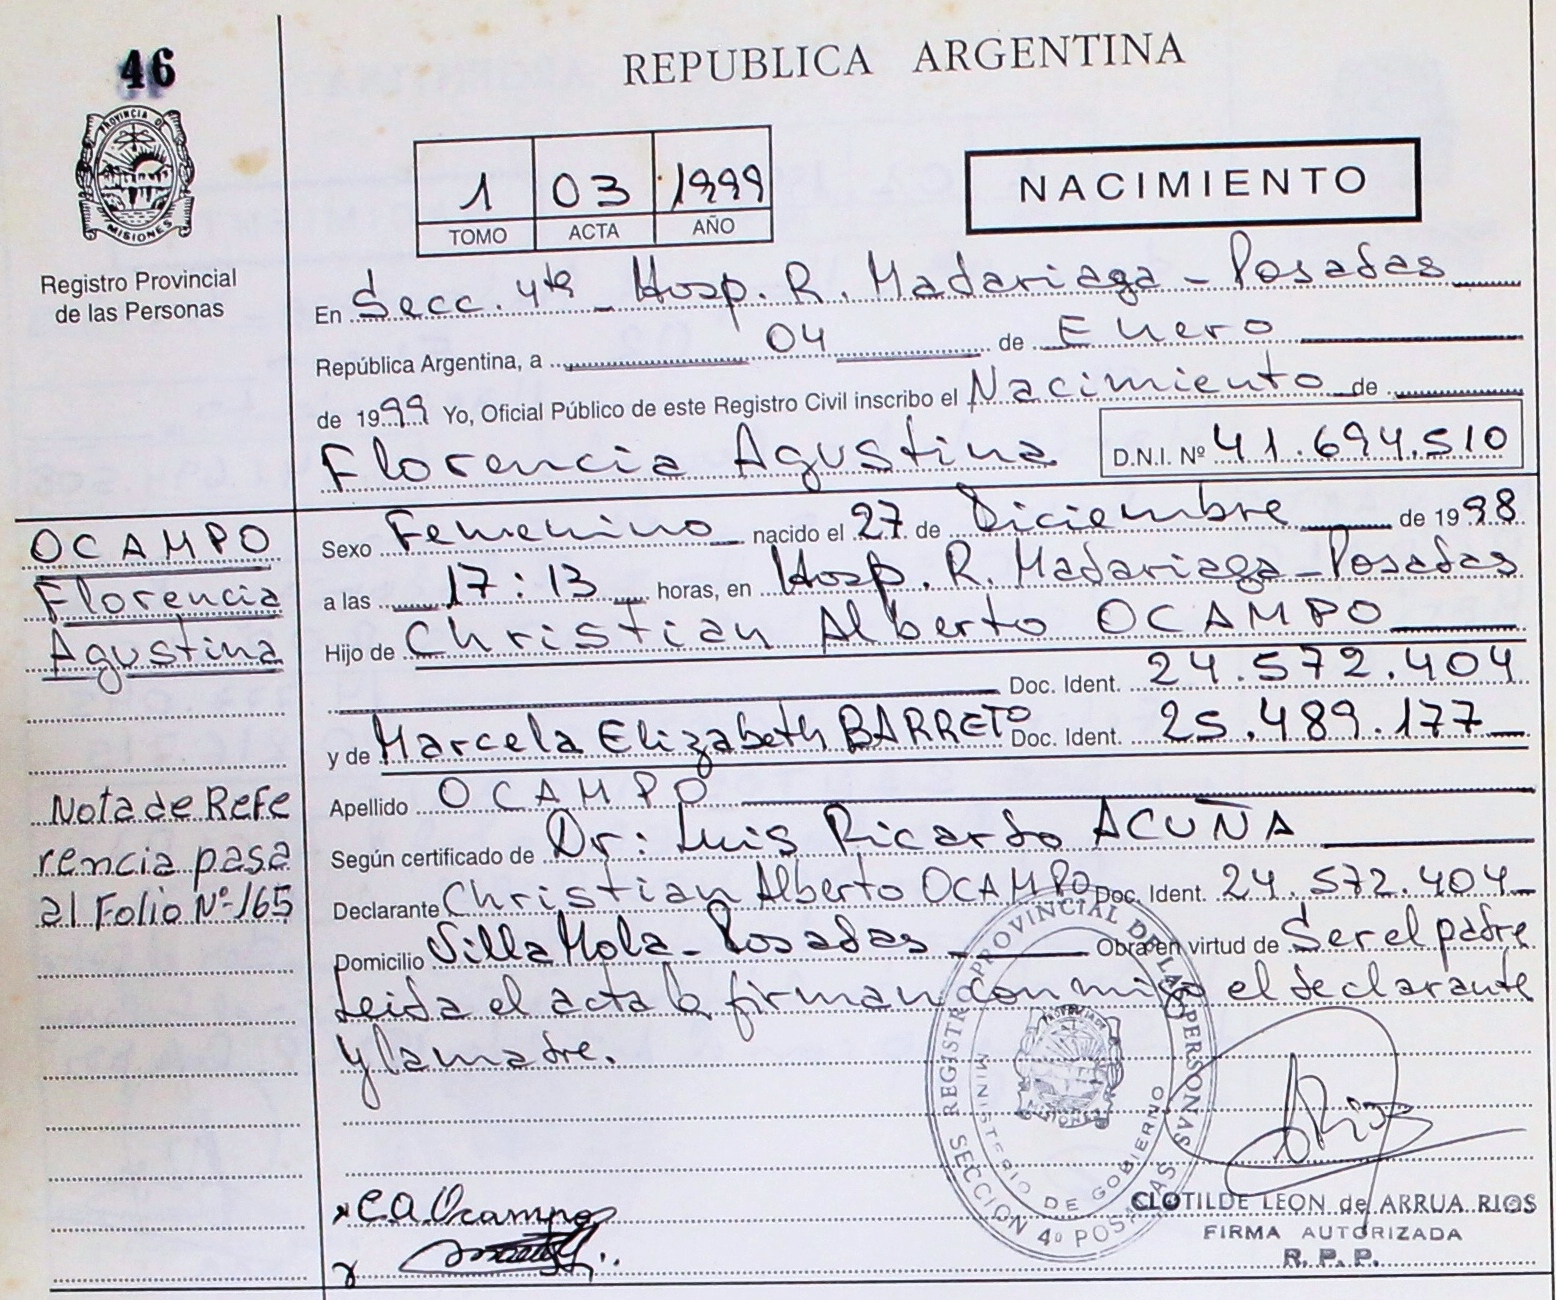 46
REPUBLICA ARGENTINA
PROVINCIA DE
MISIONES
Registro Provincial
de las Personas
1 03 1999
TOMO ACTA AÑO
NACIMIENTO
En Secc. 4ta Hosp. R. Madariaga - Posadas
República Argentina, a 04 de Enero
de 1999 Yo, Oficial Público de este Registro Civil inscribo el Nacimiento de
Florencia Agustina D.N.I. Nº 41.694.510
OCAMPO
Florencia
Agustina
Sexo Femenino nacido el 27 de Diciembre de 1998
a las 17:13 horas, en Hosp. R. Madariaga - Posadas
Hijo de Christian Alberto OCAMPO
Doc. Ident. 24.572.404
y de Marcela Elizabeth BARRETO Doc. Ident. 25.489.177
Nota de Refe
rencia pasa
al Folio Nº 165
Apellido OCAMPO
Según certificado de Dr: Luis Ricardo ACUÑA
Declarante Christian Alberto OCAMPO Doc. Ident. 24.572.404
Domicilio Villa Mola - Posadas Obra en virtud de Ser el padre
Leida el acta la firman conmigo el declarante
y la madre.
REGISTRO PROVINCIAL DE LAS PERSONAS
MINISTERIO DE GOBIERNO
SECCION 4º POSADAS
MISIONES
x C.A. Ocampo
CLOTILDE LEON de ARRUA RIOS
FIRMA AUTORIZADA
R.P.P.